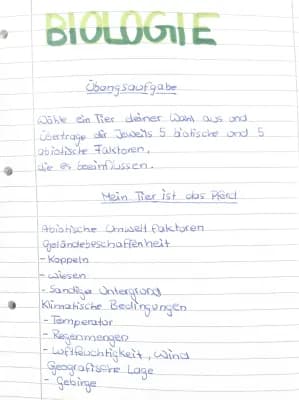 BIOLOGIE
Übungsaufgabe
Wähle ein Tier deiner Wahl aus und
übertrage dir Jeweils 5 biotische und 5
abiotische Faktoren,
die es beeinflussen.
Mein Tier ist das Pferd
Abiotische Umwelt faktoren
Geländebeschaffenheit
- Koppeln
- Wiesen
- Sandiger Untergrund
Klimatische Bedingungen
- Temperatur
- Regenmengen
- Luftfeuchtigkeit, Wind
Geografische Lage
- Gebirge